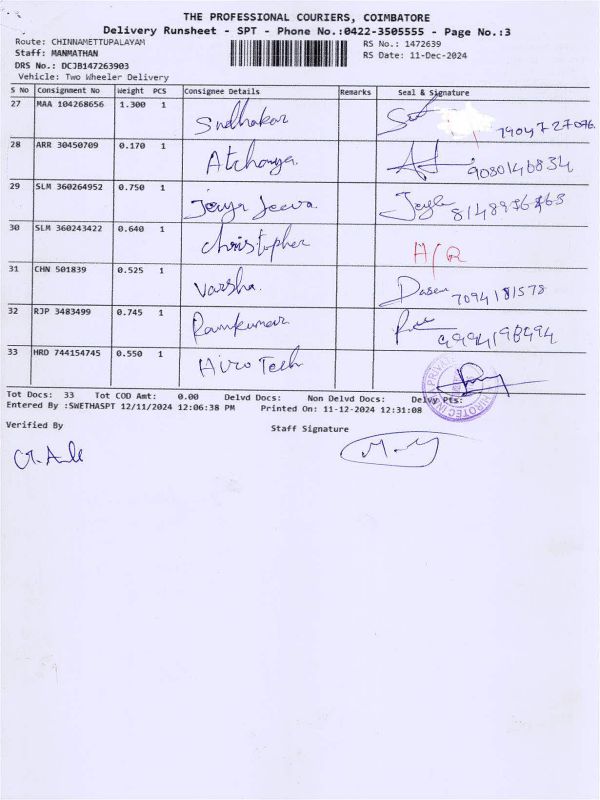 THE PROFESSIONAL COURIERS, COIMBATORE
Delivery Runsheet - SPT - Phone No.:0422-3505555 - Page No.:3
Route: CHINNAMETTUPALAYAM RS No.: 1472639
Staff: MANMATHAN RS Date: 11-Dec-2024
DRS No.: DCJB147263903
Vehicle: Two Wheeler Delivery
S No Consignment No Weight PCS Consignee Details Remarks Seal & Signature
27 MAA 104268656 1.300 1 Sudhakar
28 ARR 30450709 0.170 1 Atchaya. 9080146834
29 SLM 360264952 0.750 1 Jeeva.
30 SLM 360243422 0.640 1 Christopher H/R
31 CHN 501839 0.525 1 Varsha. 7094181578
32 RJP 3483499 0.745 1 Ramkumar 9994198494
33 HRD 744154745 0.550 1 Hiro Tech
Tot Docs: 33 Tot COD Amt: 0.00 Delvd Docs: Non Delvd Docs: Delvy Pts:
Entered By :SWETHASPT 12/11/2024 12:06:38 PM Printed On: 11-12-2024 12:31:08
Verified By Staff Signature